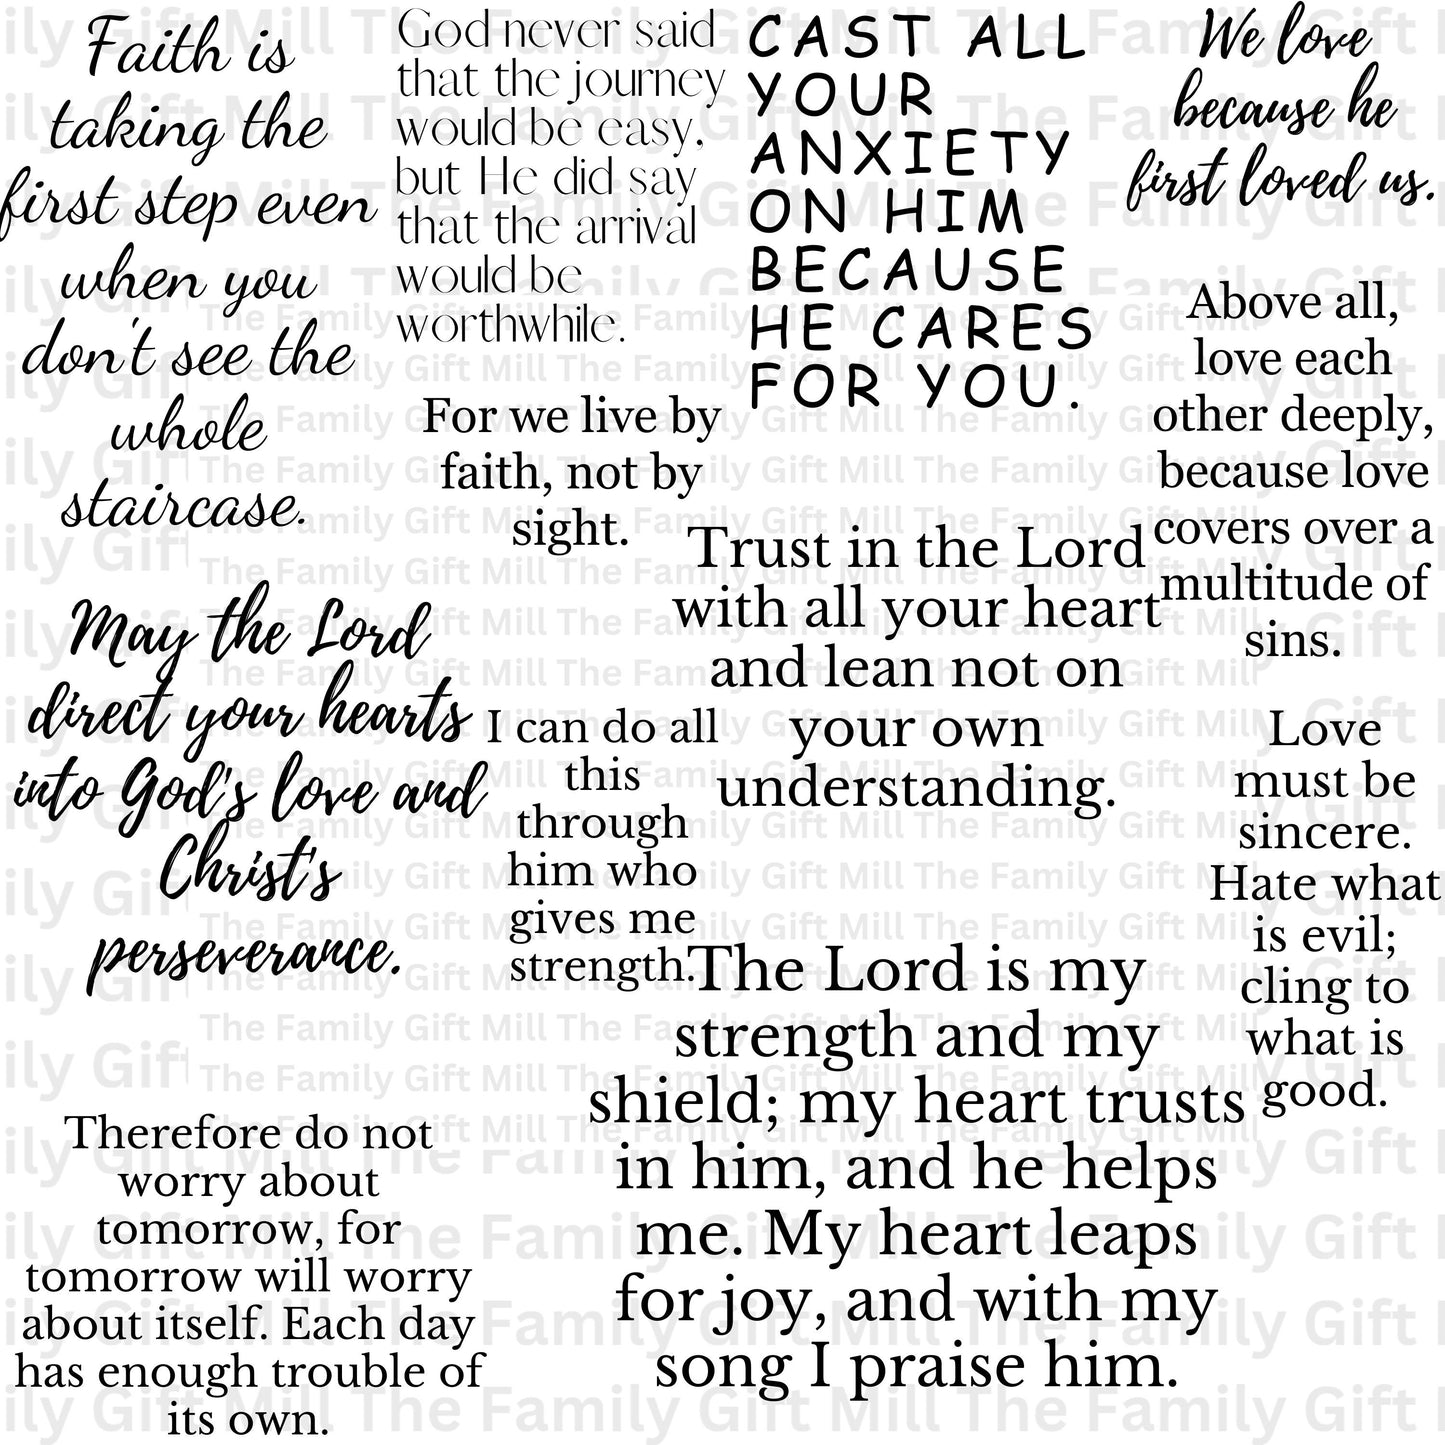 Faith is
taking the
first step even
when you
don't see the
whole
staircase.
God never said
that the journey
would be easy,
but He did say
that the arrival
would be
worthwhile.
CAST ALL
YOUR
ANXIETY
ON HIM
BECAUSE
HE CARES
FOR YOU.
We love
because he
first loved us.
For we live by
faith, not by
sight.
Above all,
love each
other deeply,
because love
covers over a
multitude of
sins.
Trust in the Lord
with all your heart
and lean not on
your own
understanding.
May the Lord
direct your hearts
into God's love and
Christ's
perseverance.
I can do all
this
through
him who
gives me
strength.
Love
must be
sincere.
Hate what
is evil;
cling to
what is
good.
The Lord is my
strength and my
shield; my heart trusts
in him, and he helps
me. My heart leaps
for joy, and with my
song I praise him.
Therefore do not
worry about
tomorrow, for
tomorrow will worry
about itself. Each day
has enough trouble of
its own.
The Family Gift Mill The Family Gift Mill The Family Gift Mill